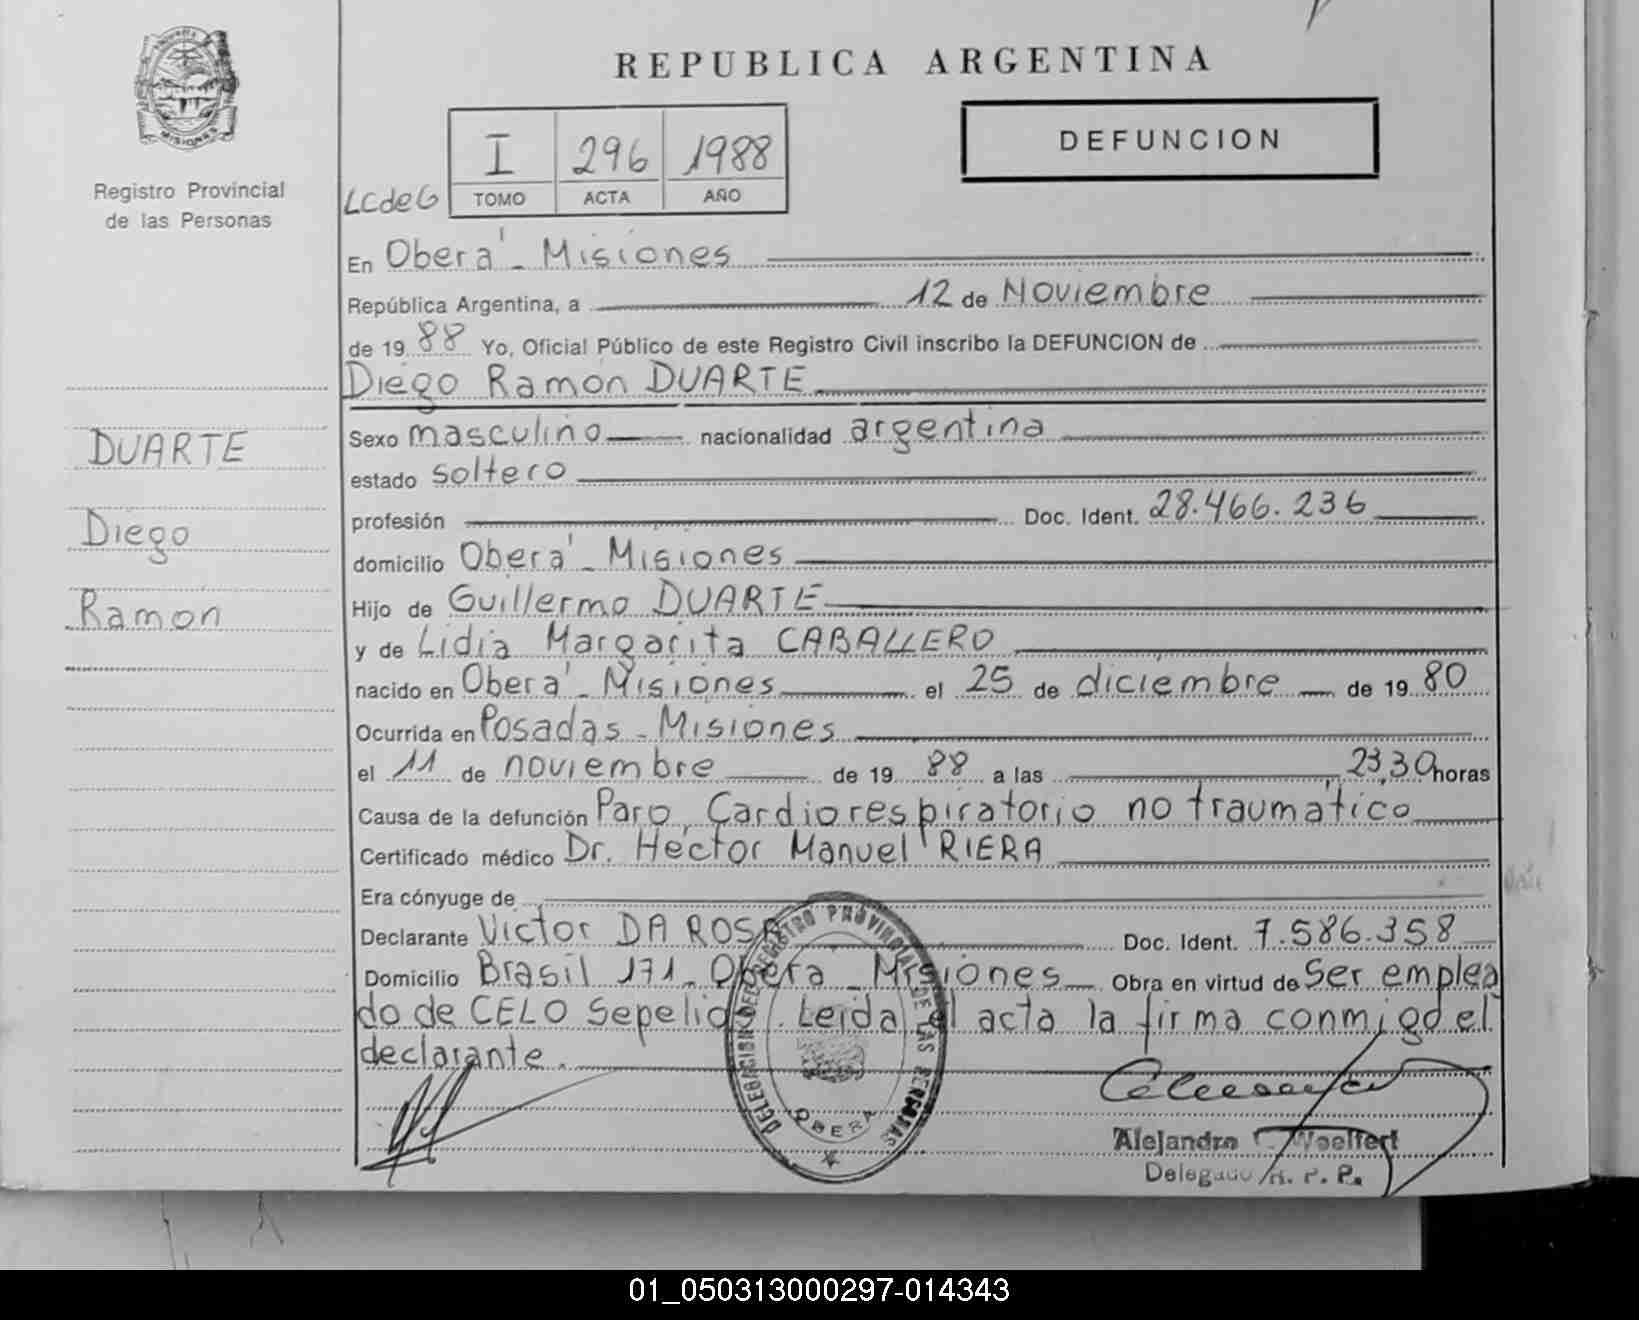 MISIONES
Registro Provincial
de las Personas
DUARTE
Diego
Ramon
REPUBLICA ARGENTINA
DEFUNCION
I 296 1988
LCdeG TOMO ACTA AÑO
En Oberá - Misiones
República Argentina, a 12 de Noviembre
de 19 88 Yo, Oficial Público de este Registro Civil inscribo la DEFUNCION de
Diego Ramon DUARTE
Sexo masculino nacionalidad argentina
estado soltero
profesión Doc. Ident. 28.466.236
domicilio Oberá - Misiones
Hijo de Guillermo DUARTE
y de Lidia Margarita CABALLERO
nacido en Oberá - Misiones el 25 de diciembre de 19 80
Ocurrida en Posadas - Misiones
el 11 de noviembre de 19 88 a las 23,30 horas
Causa de la defunción Paro Cardiorespiratorio no traumático
Certificado médico Dr. Hector Manuel RIERA
Era cónyuge de
Declarante Victor DA ROSA Doc. Ident. 7.586.358
Domicilio Brasil 171 - Obera - Misiones Obra en virtud de Ser emplea
do de CELO Sepelio. Leida el acta la firma conmigo el
declarante.
DELEGACION DEL REGISTRO PROVINCIAL DE LAS PERSONAS
OBERA
Alejandro Woelfert
Delegado R. P. P.
01_050313000297-014343